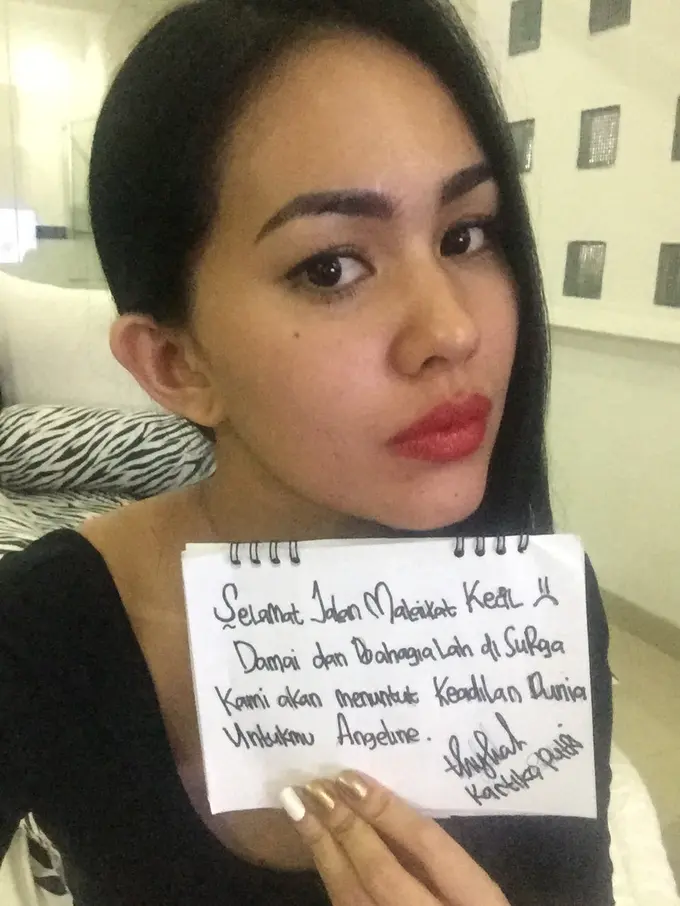 Selamat Jalan Malaikat Kecil
Damai dan Bahagialah di Surga
Kami akan menuntut Keadilan Dunia
Untukmu Angeline.
Kartika Putri